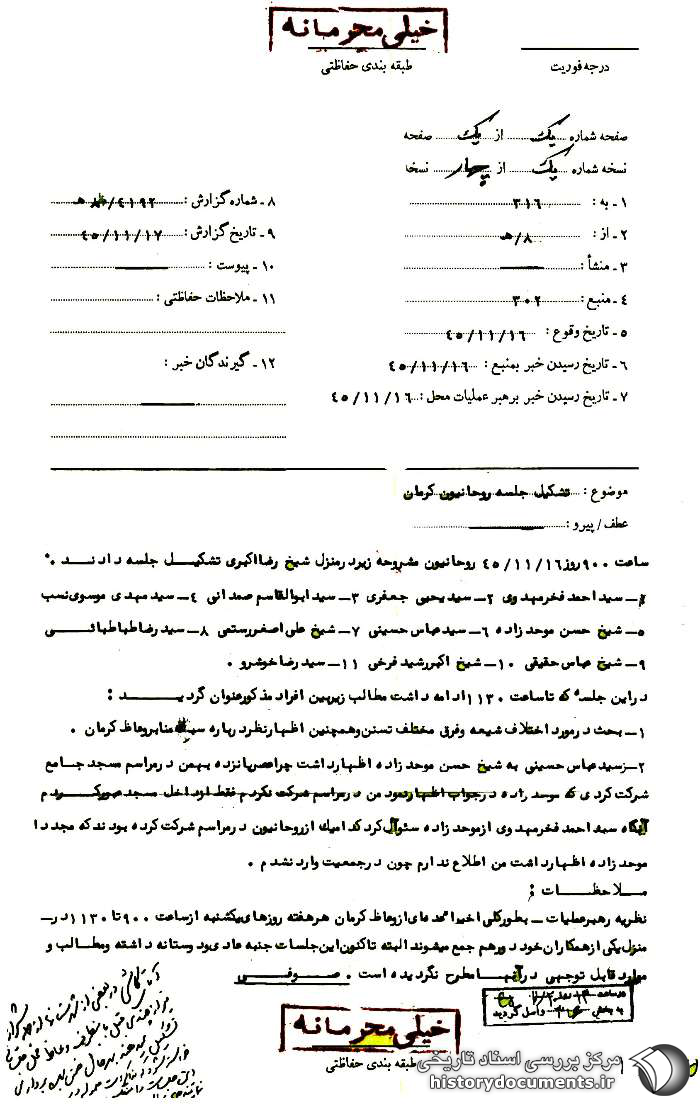 خیلی محرمانه
طبقه بندی حفاظتی
درجه فوریت
صفحه شماره یک از یک صفحه
نسخه شماره یک از چهار نسخه
۱ ـ به : ۳۱۶
۲ ـ از : ۸/ﻫ
۳ ـ منشأ :
۴ ـ منبع : ۳۰۲
۵ ـ تاریخ وقوع : ۴۵/۱۱/۱۶
۶ ـ تاریخ رسیدن خبر بمنبع : ۴۵/۱۱/۱۶
۷ ـ تاریخ رسیدن خبر برهبر عملیات محل : ۴۵/۱۱/۱۶
۸ ـ شماره گزارش : ۴۱۹۲/
۹ ـ تاریخ گزارش : ۴۵/۱۱/۱۷
۱۰ ـ پیوست :
۱۱ ـ ملاحظات حفاظتی :
۱۲ ـ گیرندگان خبر :
موضوع : تشکیل جلسه روحانیون کرمان
عطف/ پیرو :
ساعت ۹۰۰ روز ۴۵/۱۱/۱۶ روحانیون مشروحه زیر در منزل شیخ رضا اکبری تشکیل جلسه دادند .
۱ـ سید احمد فخر مهدوی ۲ـ سید یحیی جعفری ۳ـ سید ابوالقاسم صمدانی ۴ـ سید مهدی موسوی نسب
۵ـ شیخ حسن موحد زاده ۶ـ سید عباس حسینی ۷ـ شیخ علی اصغر رستمی ۸ـ سید رضا طباطبائی
۹ـ شیخ عباس حقیقی ۱۰ـ شیخ اکبر رشید فرخی ۱۱ـ سید رضا خوشرو .
در این جلسه که تا ساعت ۱۱۳۰ ادامه داشت مطالب زیر بین افراد مذکور عنوان گردید :
۱ـ بحث در مورد اختلاف شیعه و فرق مختلف تسنن و همچنین اظهار نظر درباره منابر وعاظ کرمان .
۲ـ سید عباس حسینی به شیخ حسن موحد زاده اظهار داشت چرا عصر پانزده بهمن در مراسم مسجد جامع
شرکت کردی که موحد زاده در جواب اظهار نمود من در مراسم شرکت نکردم فقط از داخل مسجد عبور کردم
آنگاه سید احمد فخر مهدوی از موحد زاده سئوال کرد کدامیك از روحانیون در مراسم شرکت کرده بودند که مجددا
موحد زاده اظهار داشت من اطلاع ندارم چون در جمعیت وارد نشدم .
ملاحظات :
نظریه رهبر عملیات ـ بطور کلی اخیرا عده ای از وعاظ کرمان هر هفته روزهای یکشنبه از ساعت ۹۰۰ تا ۱۱۳۰ در
منزل یکی از همکاران خود دور هم جمع میشوند البته تاکنون این جلسات جنبه عادی بود وستانه داشته و مطالب و
موارد قابل توجهی در آنها مطرح نگردیده است . صوفی
خیلی محرمانه
طبقه بندی حفاظتی
مرکز بررسی اسناد تاریخی
historydocuments.ir